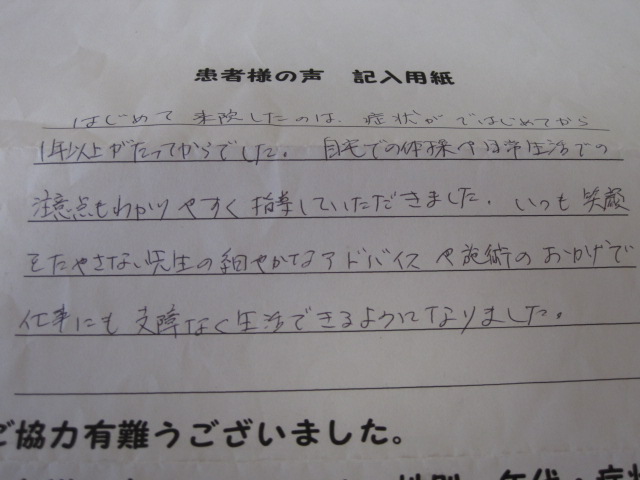 患者様の声　記入用紙
はじめて来院したのは、症状がではじめてから
1年以上がたってからでした。自宅での体操や日常生活での
注意点もわかりやすく指導していただきました。いつも笑顔
をたやさない先生の細やかなアドバイスや施術のおかげで
仕事にも支障なく生活できるようになりました。
ご協力有難うございました。